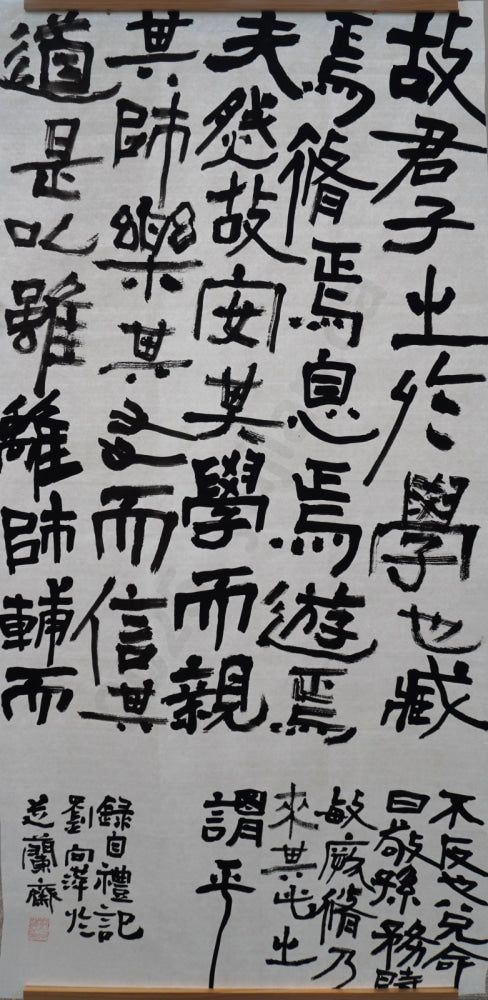 故君子之於學也藏
焉脩焉息焉遊焉
夫然故安其學而親
其師樂其友而信其
道是以雖離師輔而
不反也兌命
曰敬孫務時
敏厥脩乃
來其此之
謂乎
錄自禮記
劉向萍於
蘭齋